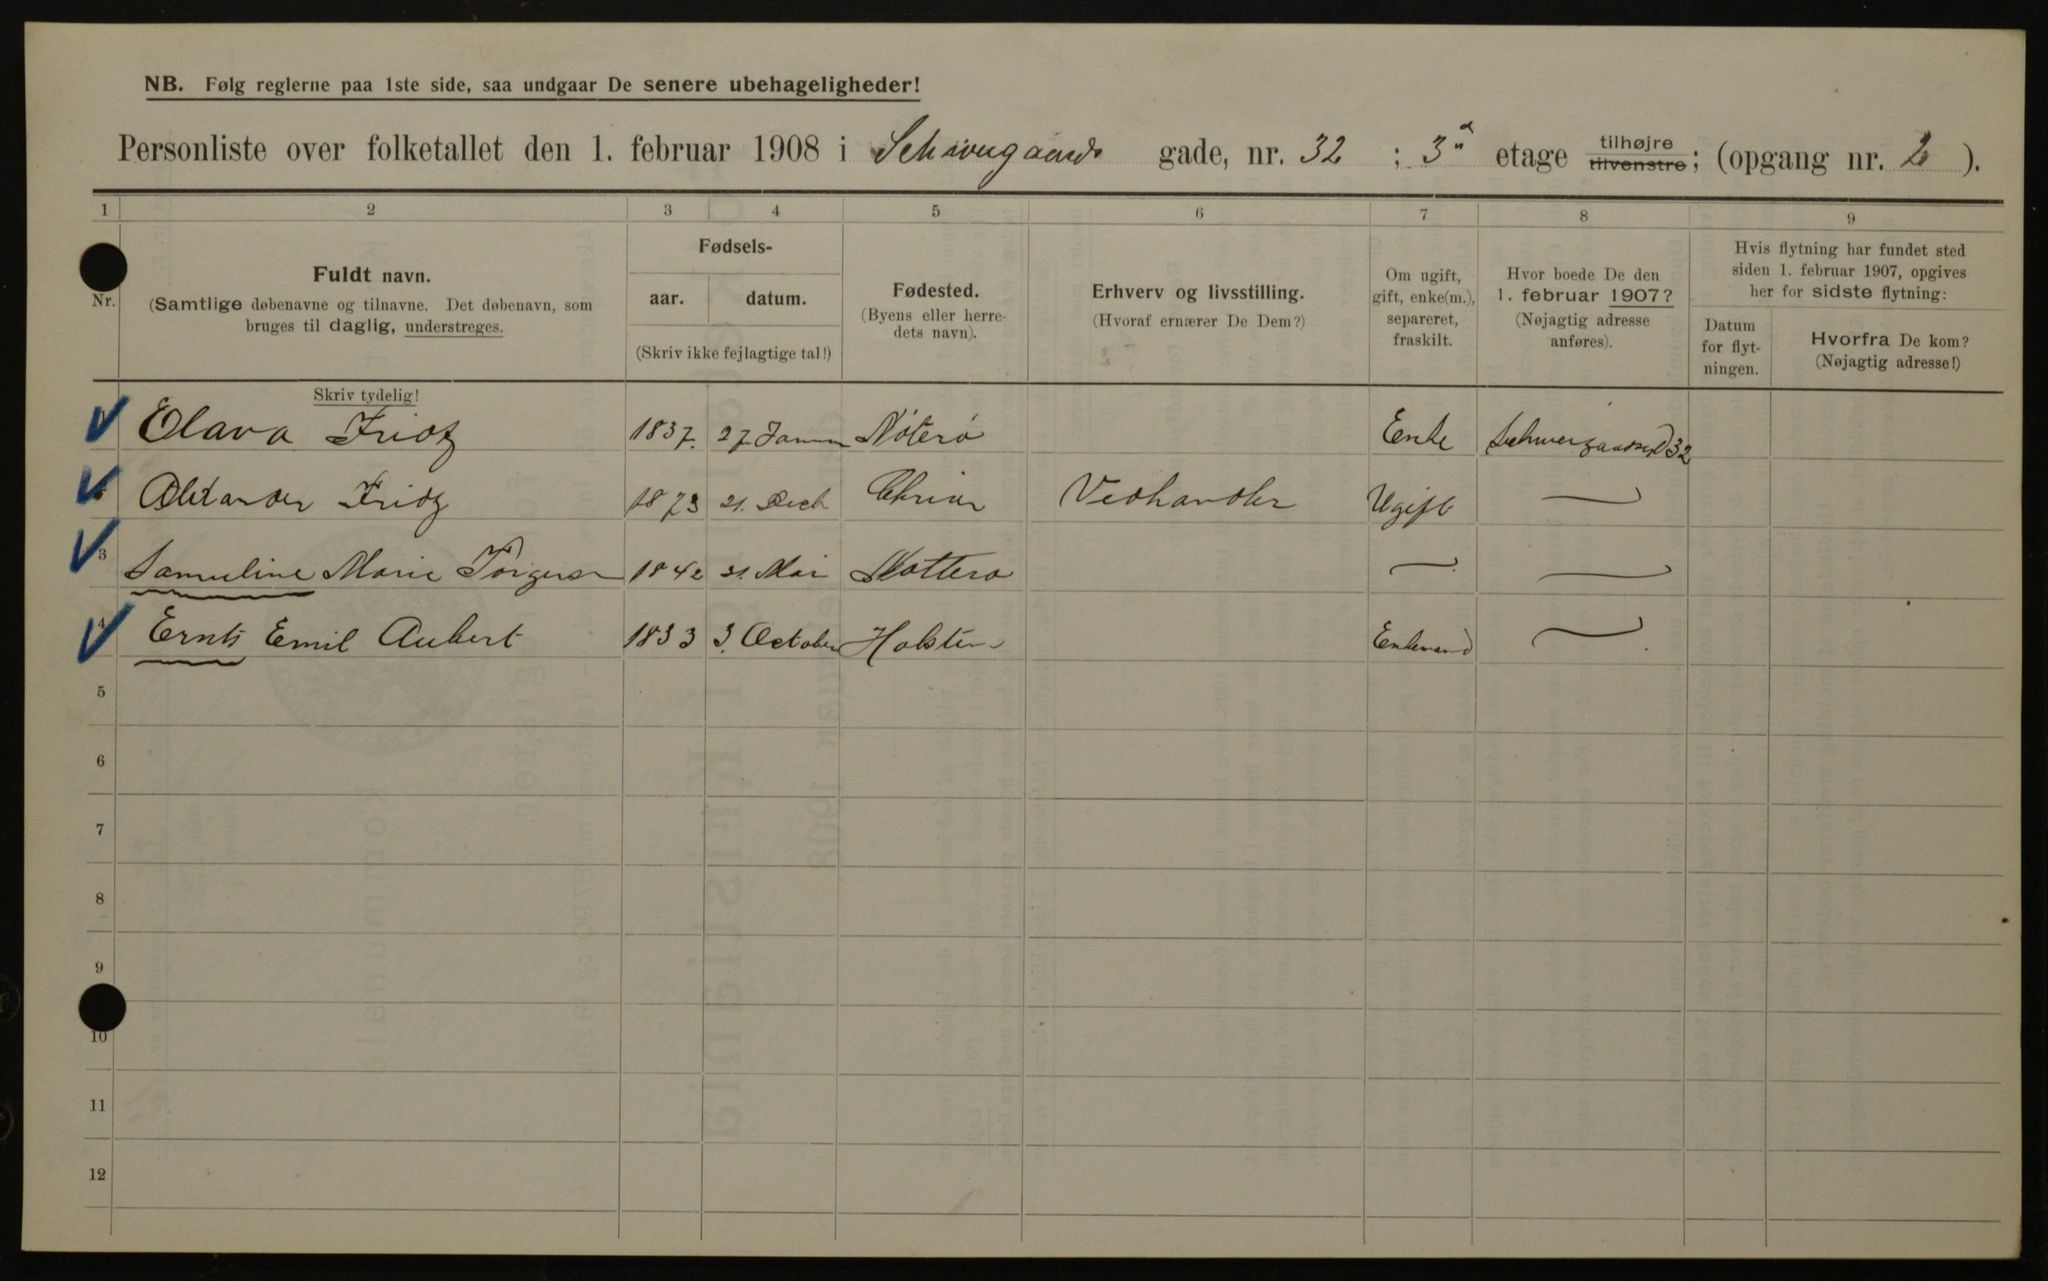 NB. Følg reglerne paa 1ste side, saa undgaar De senere ubehageligheder!
Personliste over folketallet den 1. februar 1908 i Schweigaards gade, nr. 32 ; 3 etage tilhøjre tilvenstre; (opgang nr. 2 ).
1 2 3 4 5 6 7 8 9
Nr.
Fuldt navn.
(Samtlige døbenavne og tilnavne. Det døbenavn, som
bruges til daglig, understreges.
Skriv tydelig!
Fødsels-
aar. datum.
(Skriv ikke fejlagtige tal!)
Fødested.
(Byens eller herre-
dets navn).
Erhverv og livsstilling.
(Hvoraf ernærer De Dem?)
Om ugift,
gift, enke(m.),
separeret,
fraskilt.
Hvor boede De den
1. februar 1907?
(Nøjagtig adresse
anføres).
Hvis flytning har fundet sted
siden 1. februar 1907, opgives
her for sidste flytning:
Datum
for flyt-
ningen.
Hvorfra De kom?
(Nøjagtig adresse!)
Elava Fridz 1837. 27 Januar Nøterø Enke 32
Alexander Fridz 1873 21. Dech Chria Vedhandler Ugift —
3 Samuline Marie Torgersen 1842 21. Mai Nøttero — —
4 Ernts Emil Aubert 1833 3. October Holsten Enkemand —
5
6
7
8
9
10
11
12